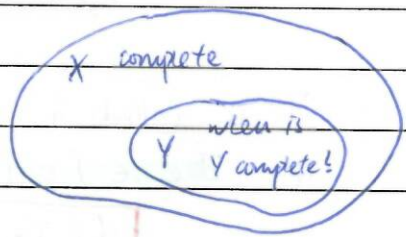 X complete
when is
Y Y complete?